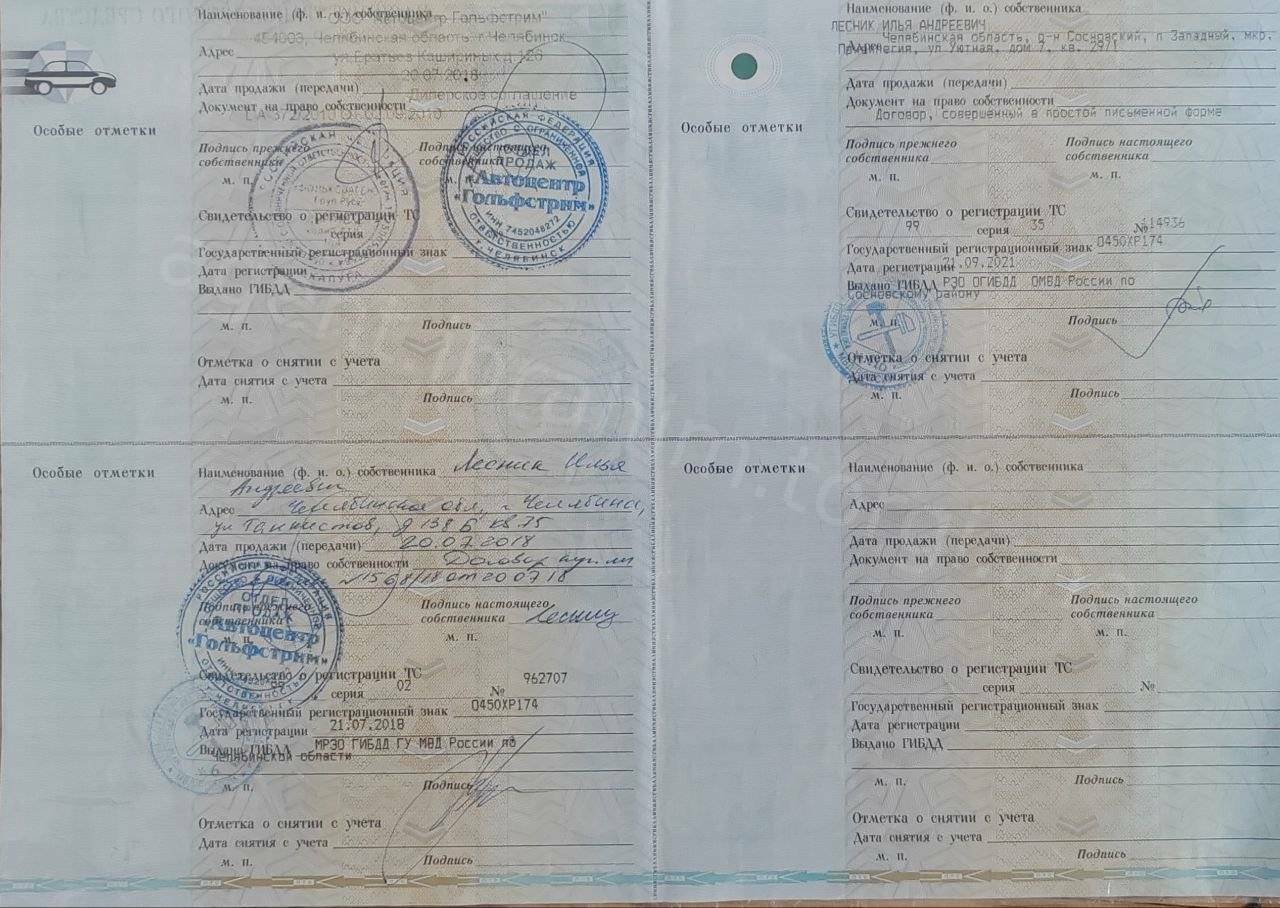 Наименование (ф. и. о.) собственника
ООО "Автоцентр Гольфстрим"
454003, Челябинская область, г.Челябинск
Адрес
ул.Братьев Кашириных д.126
20.07.2018
Дата продажи (передачи)
Дилерское соглашение
Документ на право собственности
Особые отметки
Подпись прежнего собственника
Подпись настоящего собственника
м. п.
м. п.
РОССИЙСКАЯ ФЕДЕРАЦИЯ
ОТДЕЛ ПРОДАЖ
«Автоцентр
«Гольфстрим»
ИНН 7452048272
ОТВЕТСТВЕННОСТЬЮ
г. ЧЕЛЯБИНСК
КАЛУГА
Свидетельство о регистрации ТС
серия
Государственный регистрационный знак
Дата регистрации
Выдано ГИБДД
м. п.
Подпись
Отметка о снятии с учета
Дата снятия с учета
м. п.
Подпись
Наименование (ф. и. о.) собственника
ЛЕСНИК ИЛЬЯ АНДРЕЕВИЧ
Адрес Челябинская область, р-н Сосновский, п Западный, мкр.
Привилегия, ул Уютная, дом 7, кв. 297/
Дата продажи (передачи)
Документ на право собственности
Договор, совершённый в простой письменной форме
Особые отметки
Подпись прежнего собственника
Подпись настоящего собственника
м. п.
м. п.
Свидетельство о регистрации ТС
99 35 серия № 114936
Государственный регистрационный знак О450ХР174
Дата регистрации 21.09.2021
Выдано ГИБДД РЭО ОГИБДД ОМВД России по
Сосновскому району
м. п.
Подпись
Отметка о снятии с учета
Дата снятия с учета
м. п.
Подпись
Особые отметки
Наименование (ф. и. о.) собственника Лесник Илья
Андреевич
Адрес Челябинская обл, г. Челябинск,
ул Танкистов, д 138 Б кв. 75
Дата продажи (передачи) 20.07.2018
Документ на право собственности Договор купли
от 20 07 18
Подпись прежнего собственника
Подпись настоящего собственника
м. п.
м. п.
РОССИЙСКАЯ ФЕДЕРАЦИЯ
ОТДЕЛ ПРОДАЖ
«Автоцентр
«Гольфстрим»
Свидетельство о регистрации ТС
серия 02 № 962707
Государственный регистрационный знак О450ХР174
Дата регистрации 21.07.2018
Выдано ГИБДД МРЭО ГИБДД ГУ МВД России по
Челябинской области
м. п.
Подпись
Отметка о снятии с учета
Дата снятия с учета
м. п.
Подпись
Особые отметки
Наименование (ф. и. о.) собственника
Адрес
Дата продажи (передачи)
Документ на право собственности
Подпись прежнего собственника
Подпись настоящего собственника
м. п.
м. п.
Свидетельство о регистрации ТС
серия №
Государственный регистрационный знак
Дата регистрации
Выдано ГИБДД
м. п.
Подпись
Отметка о снятии с учета
Дата снятия с учета
м. п.
Подпись